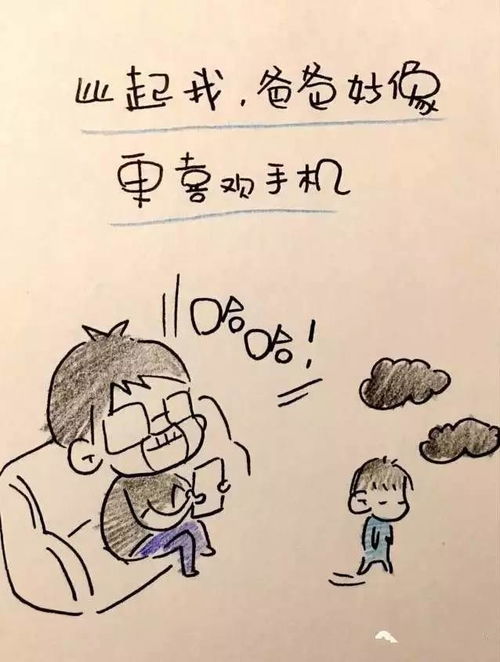 比起我,爸爸好像
更喜欢手机
哈哈!